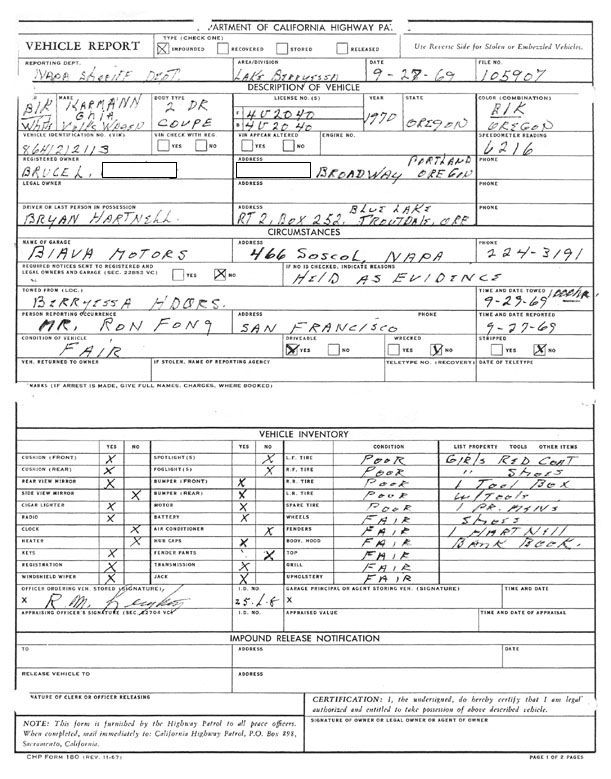 DEPARTMENT OF CALIFORNIA HIGHWAY PAT
VEHICLE REPORT TYPE (CHECK ONE) X IMPOUNDED RECOVERED STORED RELEASED Use Reverse Side for Stolen or Embezzled Vehicles.
REPORTING DEPT. AREA/DIVISION DATE FILE NO.
NAPA SHERIFF DEPT. LAKE BERRYESSA 9-28-69 105907
DESCRIPTION OF VEHICLE
YEAR MAKE BODY TYPE LICENSE NO.(S) YEAR STATE COLOR (COMBINATION)
Blk KARMANN GHIA 2 DR 4U2040 1970 OREGON Blk
White Volkswagen COUPE 4U2040 OREGON
VEHICLE IDENTIFICATION NO. (VIN) VIN CHECK WITH REG. VIN APPEAR ALTERED ENGINE NO. SPEEDOMETER READING
YES NO YES NO 6216
REGISTERED OWNER ADDRESS PHONE
BRUCE L. BROADWAY PORTLAND OREGON
LEGAL OWNER ADDRESS PHONE
DRIVER OR LAST PERSON IN POSSESSION ADDRESS PHONE
BRYAN HARTNELL. RT 2, BOX 252. BLUE LAKE TROUTDALE, ORE
CIRCUMSTANCES
NAME OF GARAGE ADDRESS PHONE
BIAVA MOTORS 466 SOSCOL, NAPA 224-3191
REQUIRED NOTICES SENT TO REGISTERED AND LEGAL OWNERS AND GARAGE (SEC. 22852 VC) YES X NO IF NO IS CHECKED, INDICATE REASONS
HELD AS EVIDENCE
TOWED FROM (LOC.) TIME AND DATE TOWED
BERRYESSA HDQRS. 9-29-69
PERSON REPORTING OCCURRENCE ADDRESS PHONE TIME AND DATE REPORTED
MR. RON FONG SAN FRANCISCO 9-27-69
CONDITION OF VEHICLE DRIVEABLE WRECKED STRIPPED
FAIR X YES NO YES X NO YES X NO
VEH. RETURNED TO OWNER IF STOLEN, NAME OF REPORTING AGENCY TELETYPE NO. (RECOVERY) DATE OF TELETYPE
MARKS (IF ARREST IS MADE, GIVE FULL NAMES, CHARGES, WHERE BOOKED)
VEHICLE INVENTORY
YES NO YES NO CONDITION LIST PROPERTY TOOLS OTHER ITEMS
CUSHION (FRONT) X SPOTLIGHT(S) X L.F. TIRE POOR GIRLS RED COAT
CUSHION (REAR) X FOGLIGHT(S) X R.F. TIRE POOR " SHOES
REAR VIEW MIRROR X BUMPER (FRONT) X R.R. TIRE POOR 1 TOOL BOX
SIDE VIEW MIRROR X BUMPER (REAR) X L.R. TIRE POOR W/TOOLS
CIGAR LIGHTER X MOTOR X SPARE TIRE POOR 1 PR. MENS
RADIO X BATTERY X WHEELS FAIR SHOES
CLOCK X AIR CONDITIONER X FENDERS FAIR 1 HARTNELL
HEATER X HUB CAPS X BODY, HOOD FAIR BANK BOOK.
KEYS X FENDER PANTS X TOP FAIR
REGISTRATION X TRANSMISSION X GRILL FAIR
WINDSHIELD WIPER X JACK X UPHOLSTERY FAIR
OFFICER ORDERING VEH. STORED (SIGNATURE) I.D. NO. GARAGE PRINCIPAL OR AGENT STORING VEH. (SIGNATURE) TIME AND DATE
X X
APPRAISING OFFICER'S SIGNATURE (SEC. 22704 VC) I.D. NO. APPRAISED VALUE TIME AND DATE OF APPRAISAL
IMPOUND RELEASE NOTIFICATION
TO ADDRESS DATE
RELEASE VEHICLE TO ADDRESS
NATURE OF CLERK OR OFFICER RELEASING CERTIFICATION: I, the undersigned, do hereby certify that I am legal
authorized and entitled to take possession of above described vehicle.
NOTE: This form is furnished by the Highway Patrol to all peace officers. SIGNATURE OF OWNER OR LEGAL OWNER OR AGENT OF OWNER
When completed, mail immediately to: California Highway Patrol, P.O. Box 898,
Sacramento, California.
CHP FORM 180 (REV. 11-67) PAGE 1 OF 2 PAGES